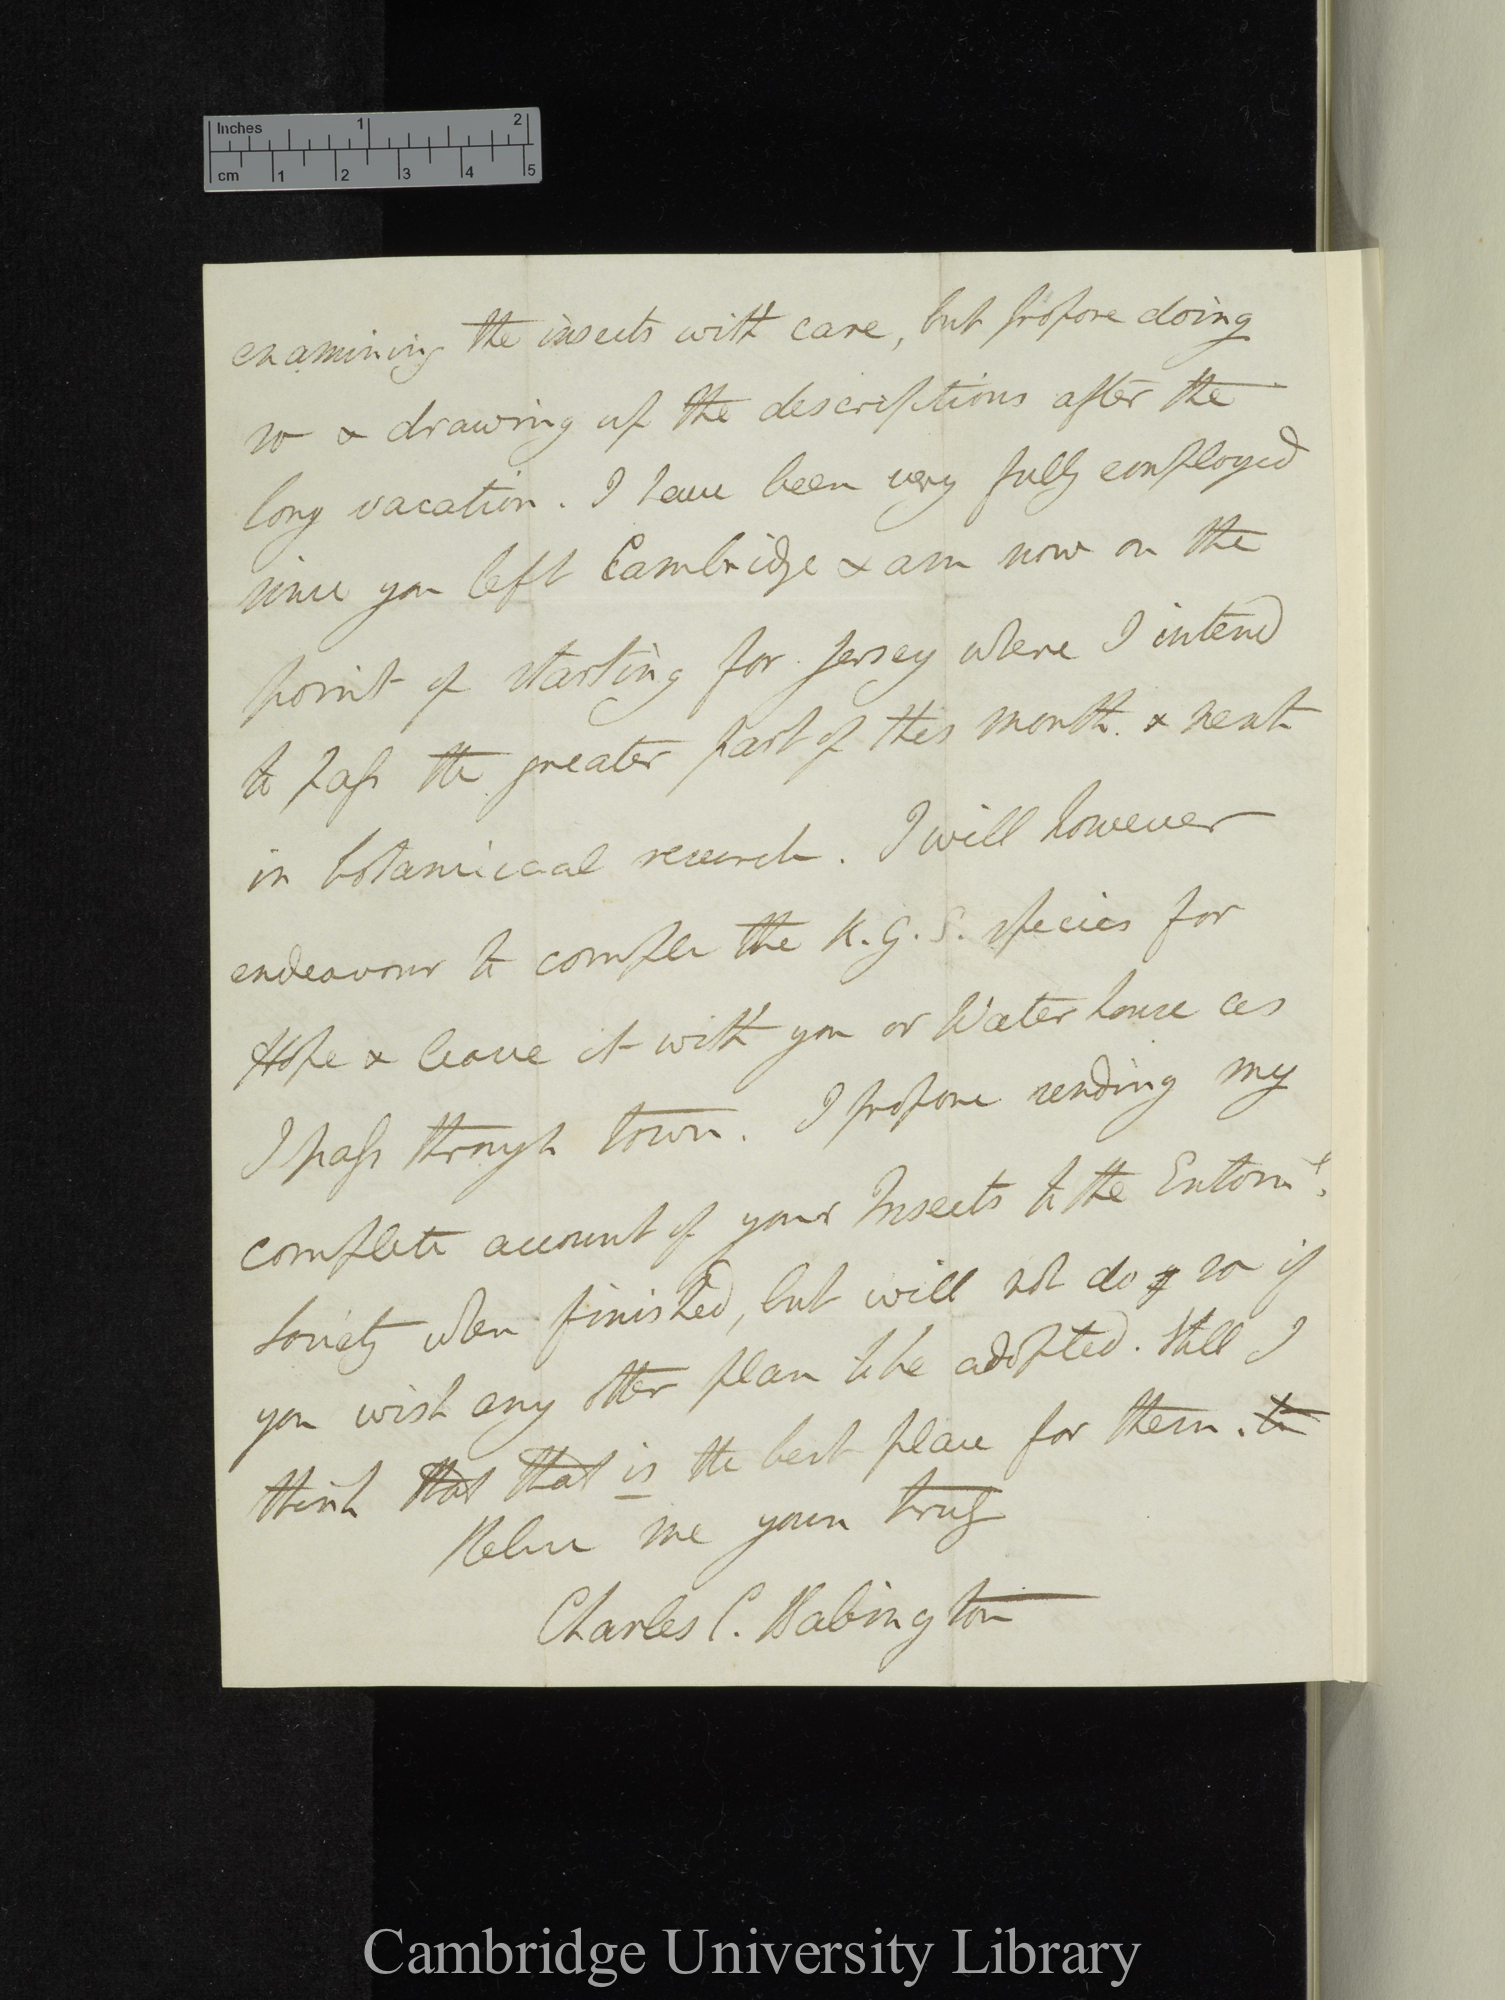 Inches 1 2
cm 1 2 3 4 5
examining the insects with care, but propose doing
so & drawing up the descriptions after the
long vacation. I have been very fully employed
since you left Cambridge & am now on the
point of starting for Jersey where I intend
to pass the greater part of this month & next
in botanical research. I will however
endeavour to complete the K.G.S. species for
Hope & leave it with you or Waterhouse as
I pass through town. I propose sending my
complete account of your Insects to the Entom^l.
Society when finished, but will not do so if
you wish any other plan to be adopted. Still I
think that that is the best place for them.
Believe me yours truly
Charles C. Babington
Cambridge University Library